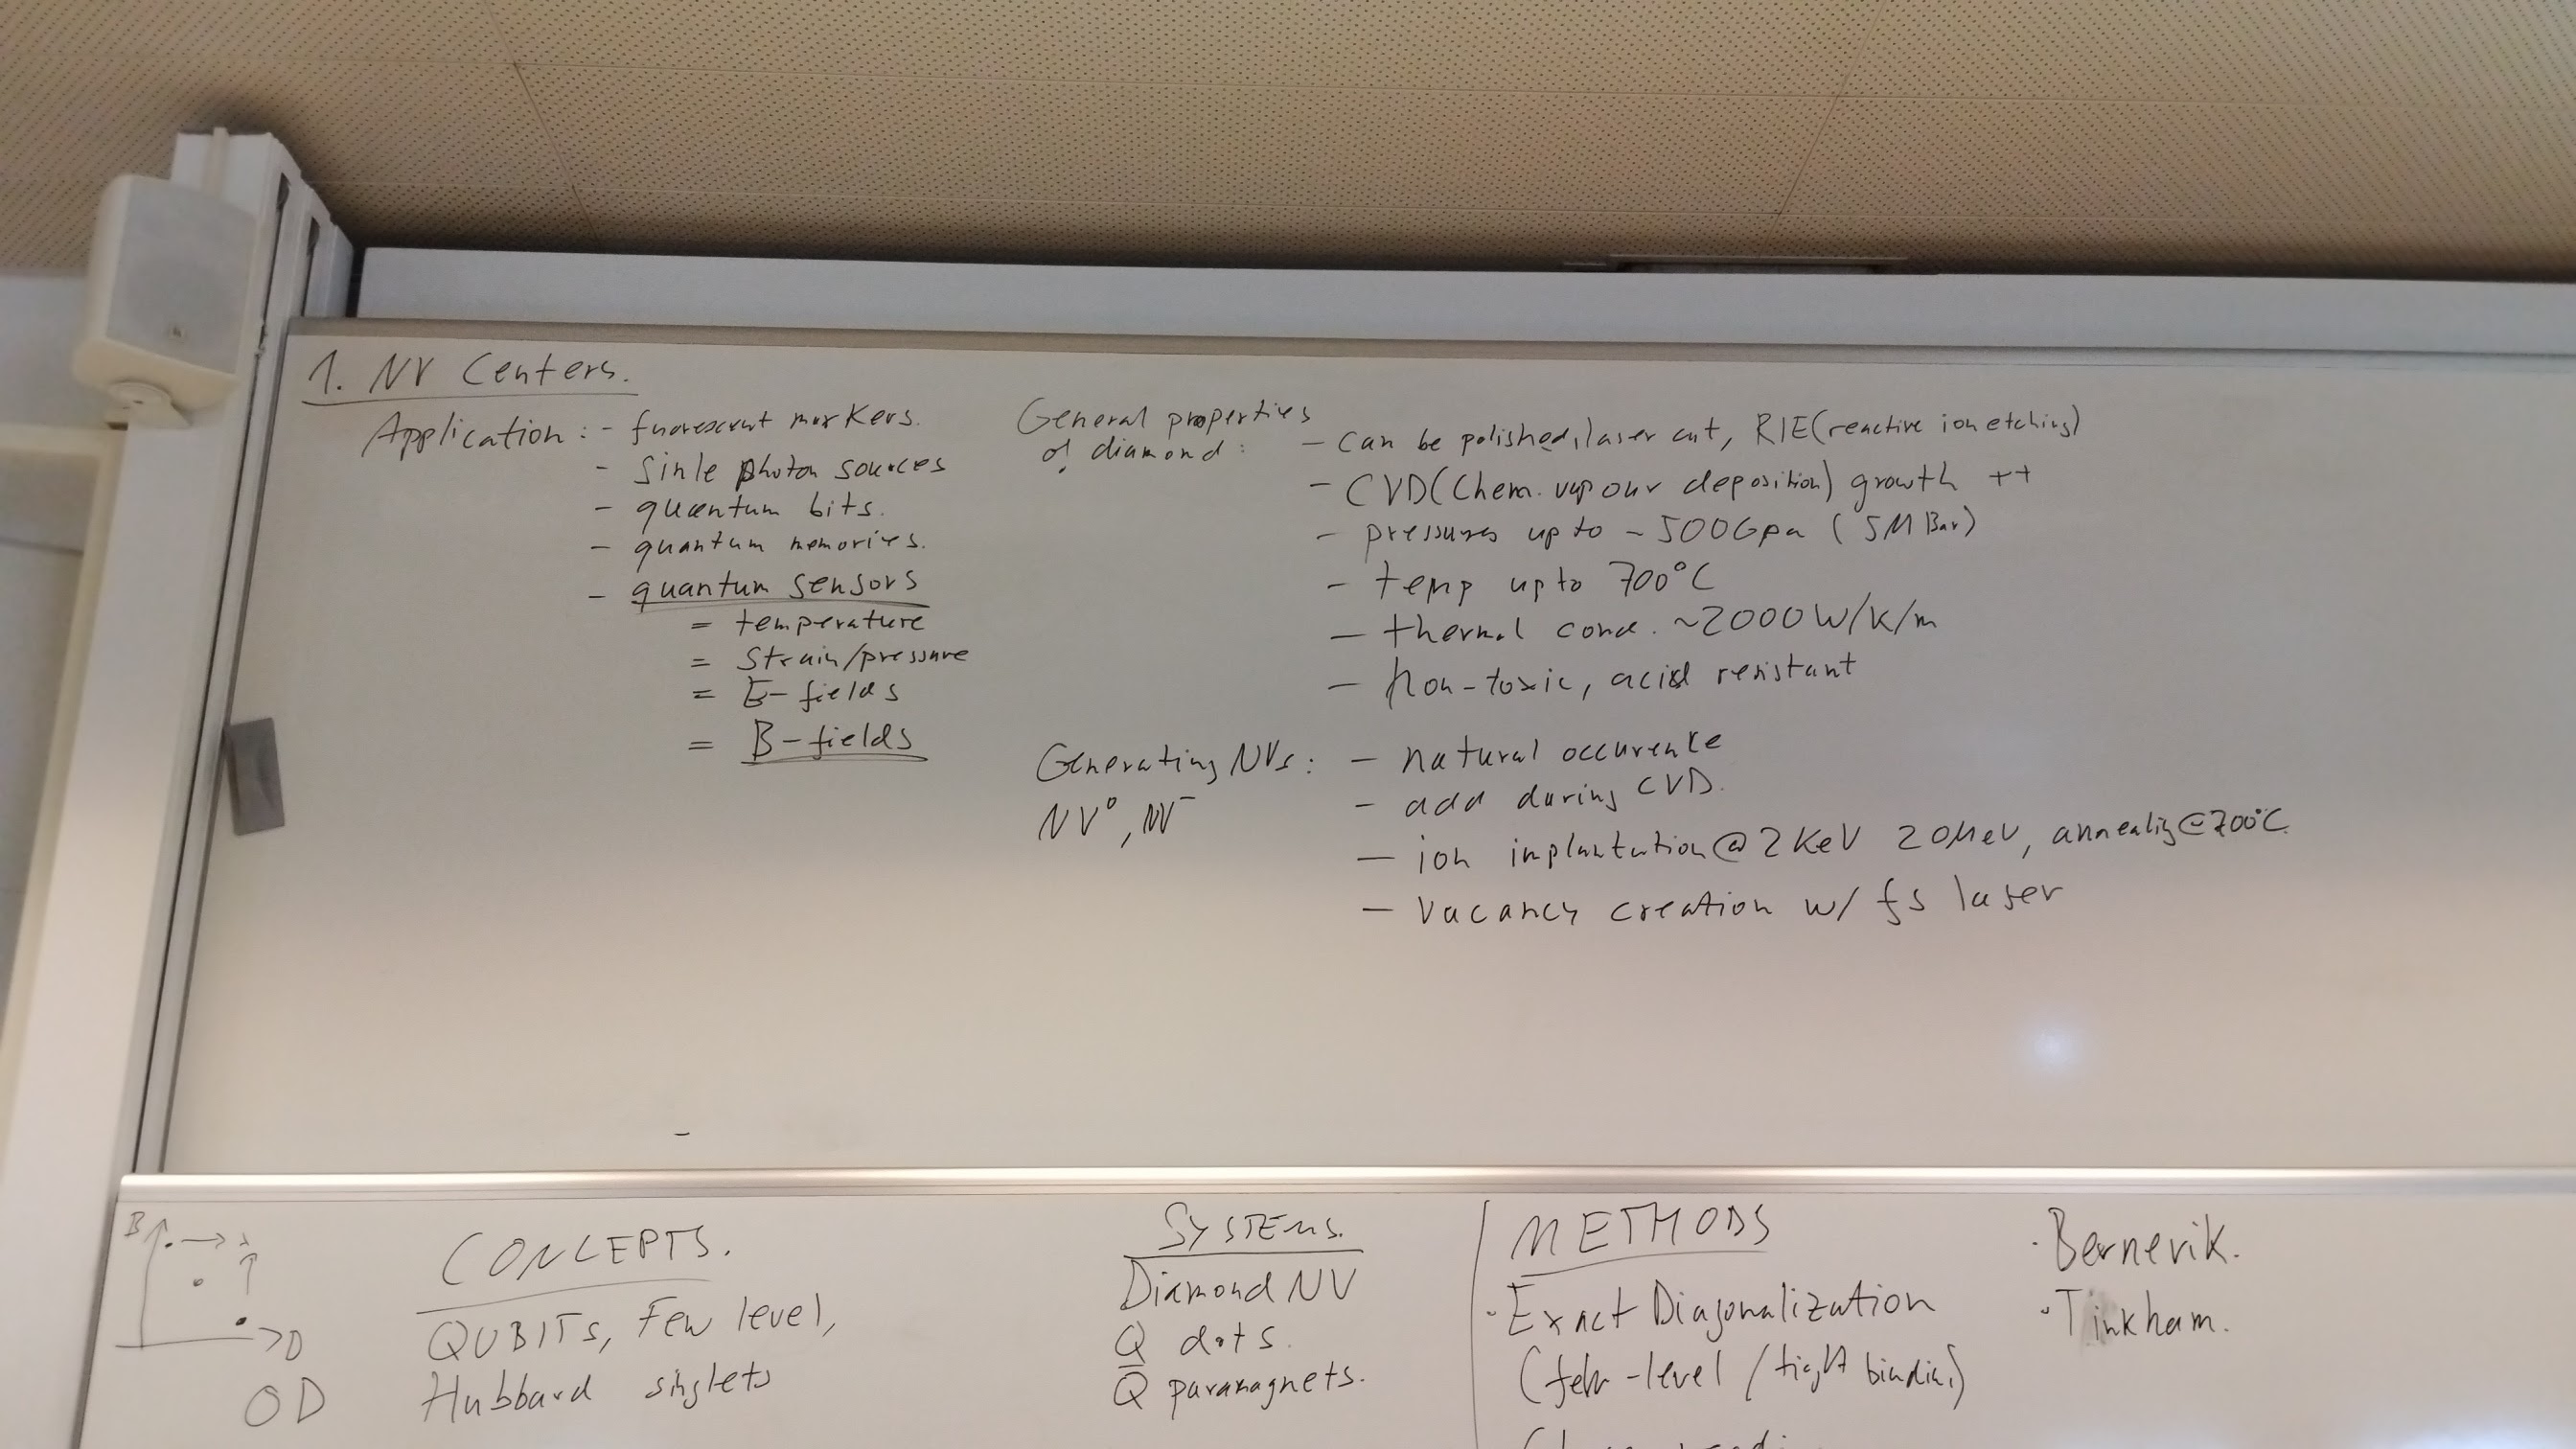 1. NV Centers.
Application: - fuorescent markers.
- Sinle photon sources
- quantum bits.
- quantum memories.
- quantum sensors
= temperature
= Strain/pressure
= E-fields
= B-fields
General properties
of diamond:
- can be polished, laser cut, RIE(reactive ion etching)
- CVD(Chem. vapour deposition) growth ++
- pressures up to ~500Gpa (5MBar)
- temp up to 700°C
- thermal cond. ~2000W/K/m
- Non-toxic, acid resistant
Generating NVs: - natural occurence
NV⁰, NV⁻
- add during CVD.
- ion implantation@2KeV 20MeV, annealing@700°C
- Vacancy creation w/ fs laser
B
D
0D
CONCEPTS.
QUBITs, Few level,
Hubbard singlets
SYSTEMS.
Diamond NV
Q dots.
Q paramagnets.
METHODS
· Exact Diagonalization
(few-level / tight binding)
· Bernevik.
· Tinkham.